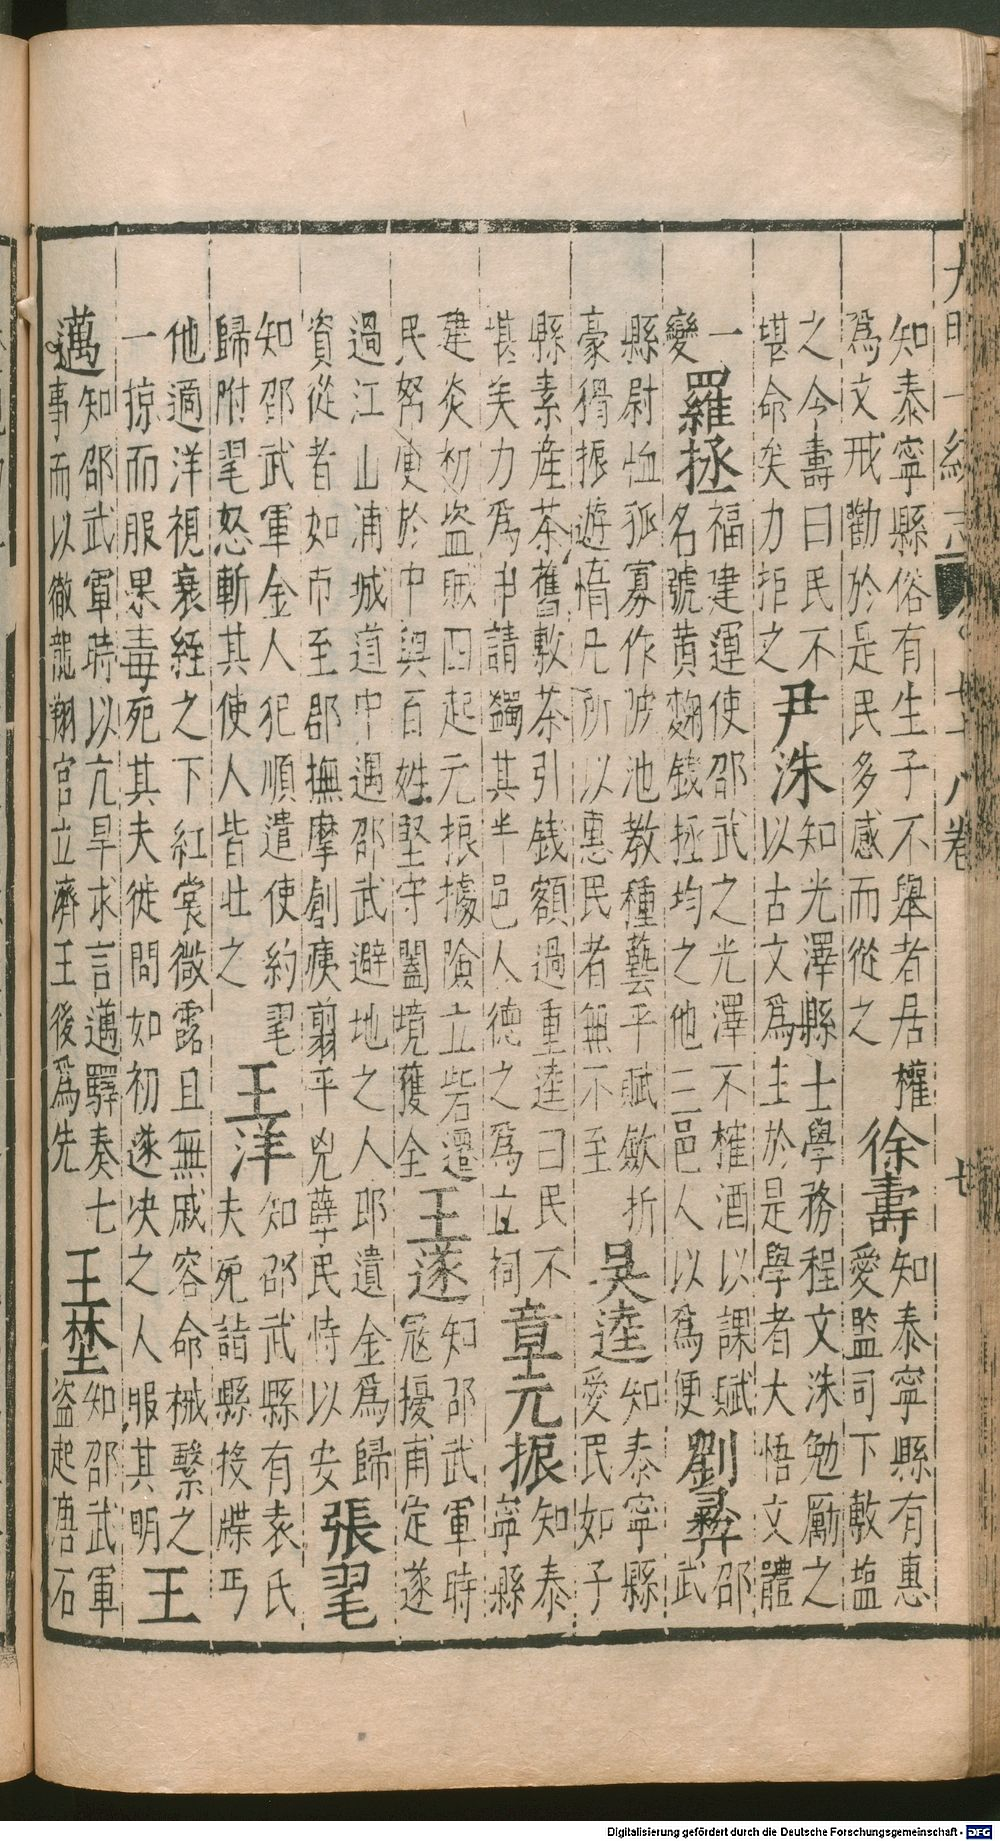 大明一統志 卷七十八 廿
知泰寧縣俗有生子不舉者居權為文戒勸於是民多感而從之 徐壽 知泰寧縣有惠愛監司下敷塩
之今壽曰民不堪命矣力拒之 尹洙 知光澤縣士學務程文洙勉厲之以古文為主於是學者大悟文體
一變 羅拯 福建運使邵武之光澤不榷酒以課賦名號黄麴錢拯均之他三邑人以為便 劉彝 邵武
縣尉恤孤寡作陂池教種藝平賦歛折豪猾振遊惰凡所以惠民者無不至 吳逵 知泰寧縣愛民如子
縣素產茶舊敷茶引錢額過重逵曰民不堪矣力為申請蠲其半邑人德之為立祠 章元振 知泰寧縣
建炎初盜賊四起元振據險立砦遷民帑廋於中與百姓堅守闔境獲全 王遂 知邵武軍時冦擾甫定遂
過江山浦城道中遇邵武避地之人即遺金為歸資從者如市至郡撫摩創痍翦平兇孽民恃以安 張翬
知邵武軍金人犯順遣使約翬歸附翬怒斬其使人皆壯之 王洋 知邵武縣有袁氏夫死詣縣投牒丐
他適洋視衰絰之下紅裳微露且無戚容命械繫之一掠而服果毒死其夫徙問如初遂决之人服其明 王
邁 知邵武軍時以亢旱求言邁驛奏七事而以徹龍翔宫立濟王後為先 王埜 知邵武軍盜起唐石
Digitalisierung gefördert durch die Deutsche Forschungsgemeinschaft - DFG